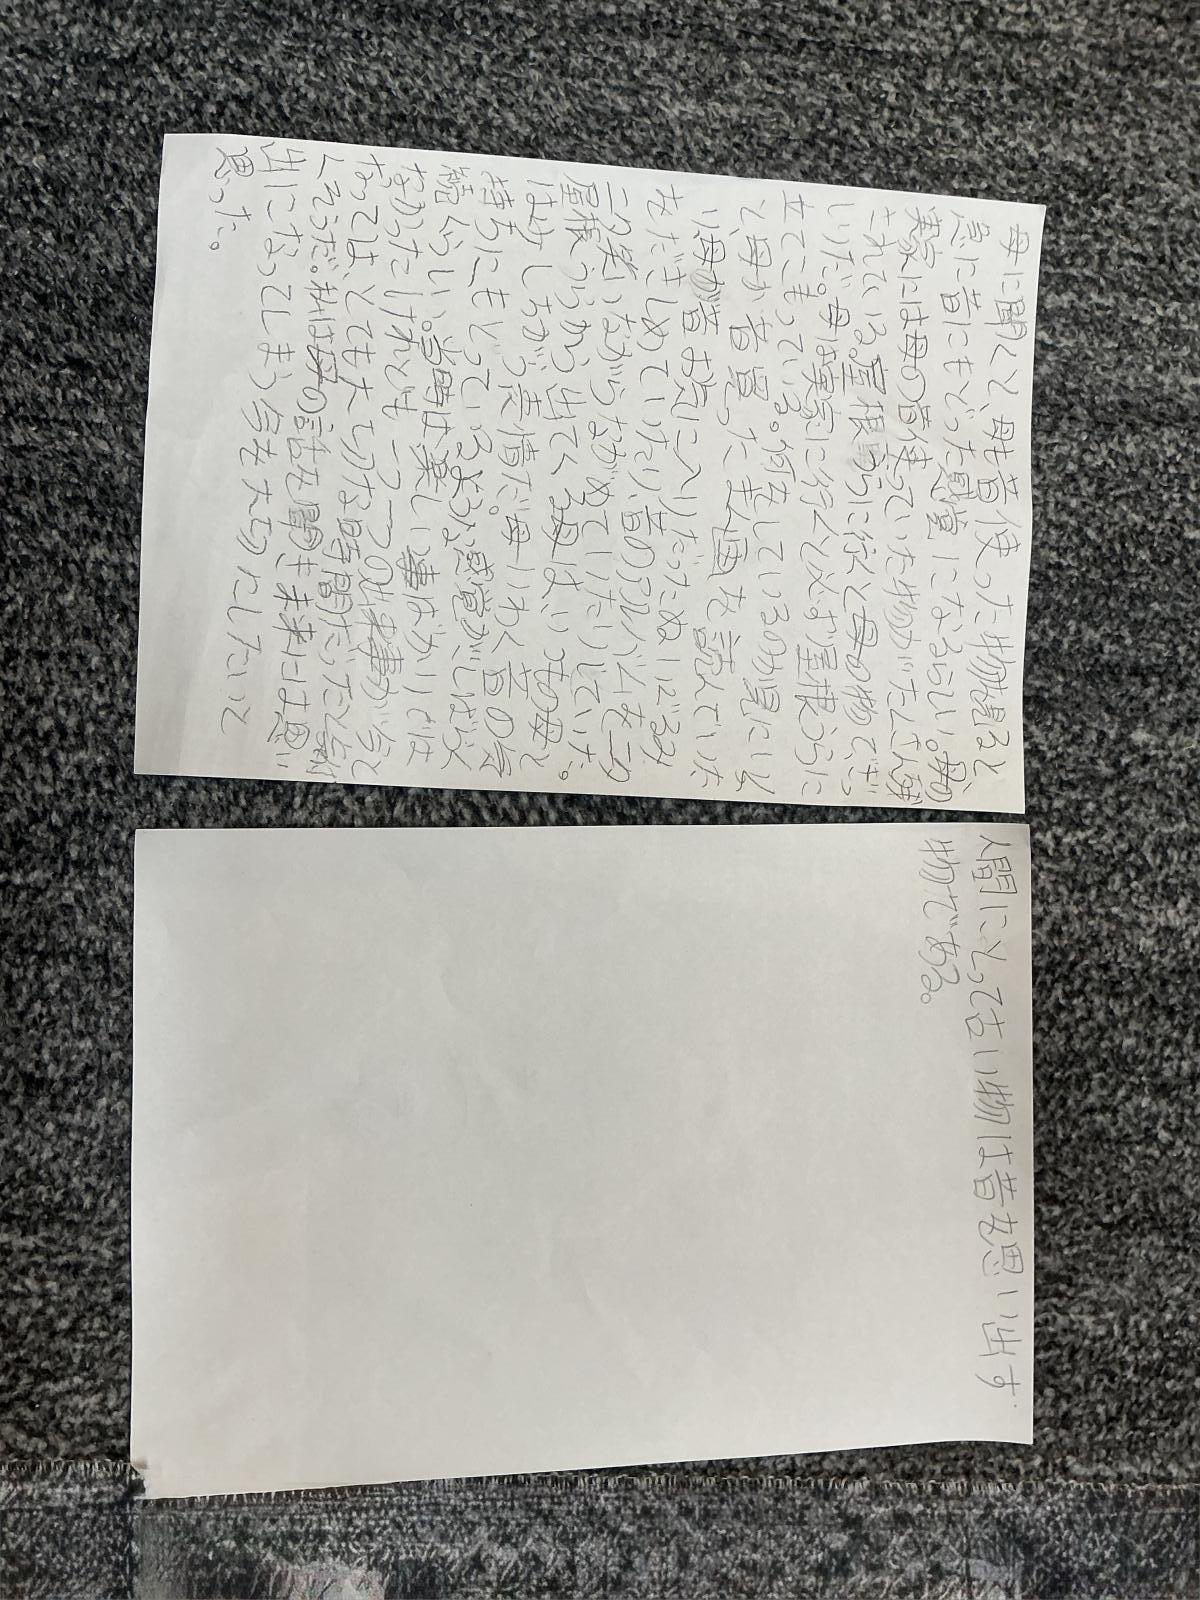 母に聞くと、毎昔使った物見ると、
急に昔にもどった感覚になるらしい。母の
実家には母の昔使っていた物がたくさん残
されている屋根うらに行くと母の物でぎっ
しりだ。母は実家に行くと必ず屋根うらに
立てこもっている。何をしているのか見にいく
と、母が昔買ったまん画を読んでいた
り母が昔お気に入りだったぬいぐるみ
をだきしめていたり、昔のアルバムを一つ
二つ笑いながらながめていたりしていた。
屋根うらから出てくる母は、いつもの母と
は少しちがう表情だ。母いわく昔の気
持ちにもどっているような感覚がしばらく
続くらしい。当時は楽しい事ばかりでは
なかったけれども一つ一つの出来事が今と
なってはとても大切な時間だったと
くそうだ。私は母の話を聞き未来には思い
出になってしまう今を大切にしたいと
思った。
人間にとって古い物は昔を思い出す
物である。